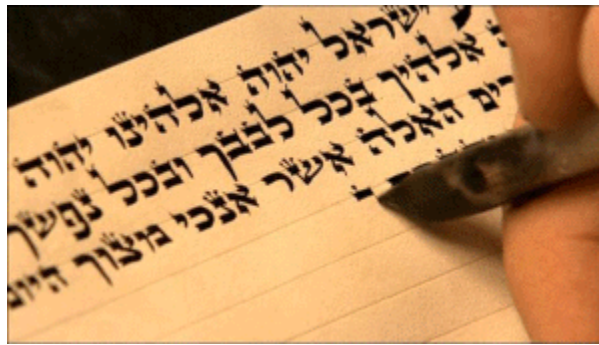 ישראל יהוה אלהינו יהוה
אלהיך בכל לבבך ובכל נפשך
האלה אשר אנכי מצוך היום